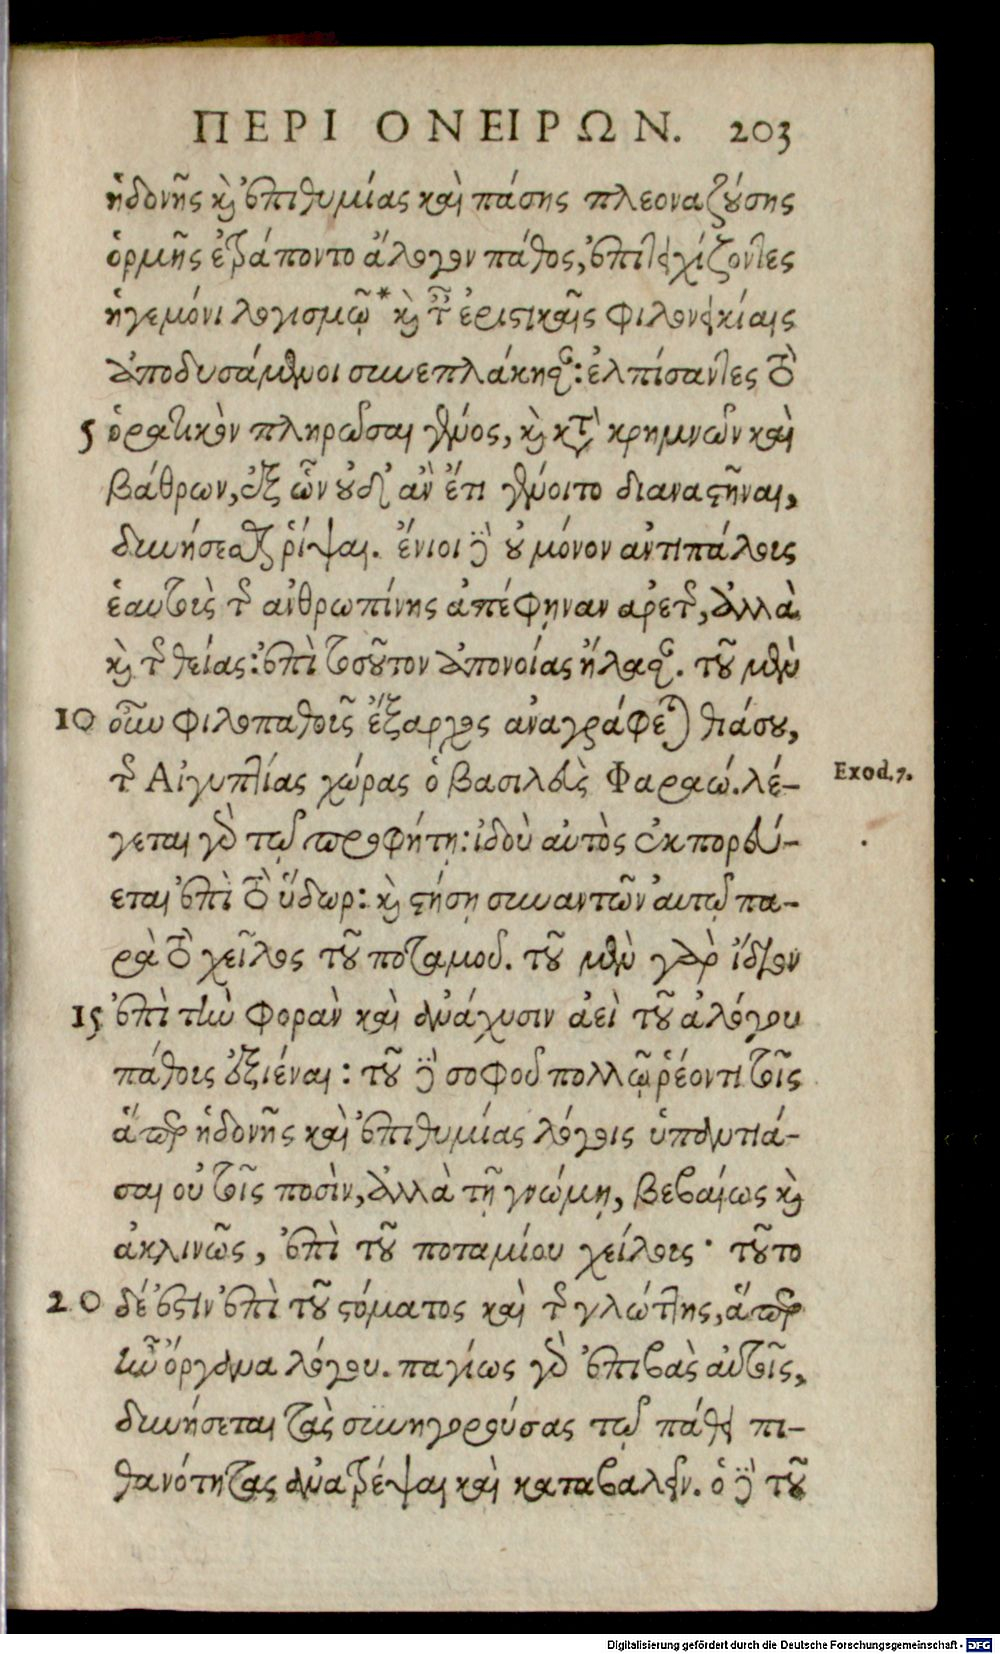 ΠΕΡΙ ΟΝΕΙΡΩΝ. 203
ἡδονῆς καὶ ἐπιθυμίας καὶ πάσης πλεοναζούσης
ὁρμῆς ἐξάπτοντο ἄλογον πάθος, ἐπιτειχίζοντες
ἡγεμόνι λογισμῷ* καὶ ταῖς ἐριστικαῖς φιλονεικίαις
ἀποδυσάμενοι συνεπλάκησαν: ἐλπίσαντες τὸ
5 ὁρατικὸν πληρῶσαι γένος, καὶ κατὰ κρημνῶν καὶ
βάθρων, ἐξ ὧν οὐδ' ἂν ἔτι γένοιτο διαναστῆναι,
δυνήσεσθαι ῥίψαι. ἔνιοι δὲ οὐ μόνον ἀντιπάλους
ἑαυτοὺς τῆς ἀνθρωπίνης ἀπέφηναν ἀρετῆς, ἀλλὰ
καὶ τῆς θείας: ἐπὶ τοσοῦτον ἀπονοίας ἤλασαν. τοῦ μὲν
10 οὖν φιλοπαθοῦς ἔξαρχος ἀναγράφεται θιάσου,
τῆς Αἰγυπτίας χώρας ὁ βασιλεὺς Φαραώ. λέ-
Exod. 7.
γεται γὰρ τῷ προφήτῃ: ἰδοὺ αὐτὸς ἐκπορεύ-
εται ἐπὶ τὸ ὕδωρ: καὶ στήσῃ συναντῶν αὐτῷ πα-
ρὰ τὸ χεῖλος τοῦ ποταμοῦ. τοῦ μὲν γὰρ ἴδιον
15 ἐπὶ τὴν φορὰν καὶ ἀνάχυσιν ἀεὶ τοῦ ἀλόγου
πάθους ἐξιέναι: τοῦ δὲ σοφοῦ πολλῷ ῥέοντι τοῖς
ὑπὲρ ἡδονῆς καὶ ἐπιθυμίας λόγοις ὑπαντιά-
σαι οὐ τοῖς ποσὶν, ἀλλὰ τῇ γνώμῃ, βεβαίως καὶ
ἀκλινῶς, ἐπὶ τοῦ ποταμίου χείλους· τοῦτο
20 δέ ἐστιν ἐπὶ τοῦ στόματος καὶ τῆς γλώττης, ἅπερ
ἦν ὄργανα λόγου. παγίως γὰρ ἐπιβὰς αὐτοῖς,
δυνήσεται τὰς συνηγορούσας τῷ πάθει πι-
θανότητας ἀνατρέψαι καὶ καταβαλεῖν. ὁ δὲ τοῦ
Digitalisierung gefördert durch die Deutsche Forschungsgemeinschaft - DFG